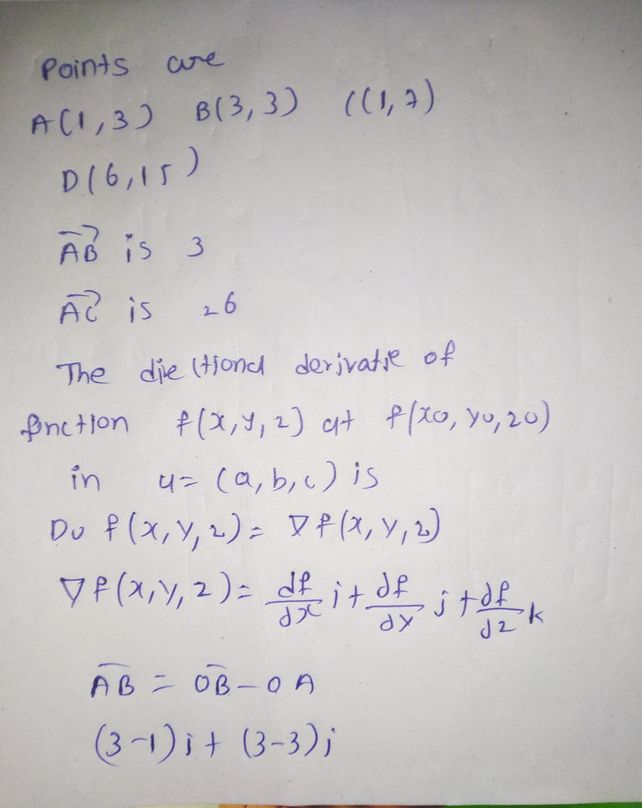 Points are
A(1,3) B(3,3) C(1,7)
D(6,15)
AB is 3
AC is 26
The directional derivative of
function f(x,y,z) at f(x0,y0,z0)
in u=(a,b,c) is
Du f(x,y,z)= ∇f(x,y,z)
∇f(x,y,z)= df/dx i+ df/dy j+ df/dz k
AB = OB-OA
(3-1)i+ (3-3)j